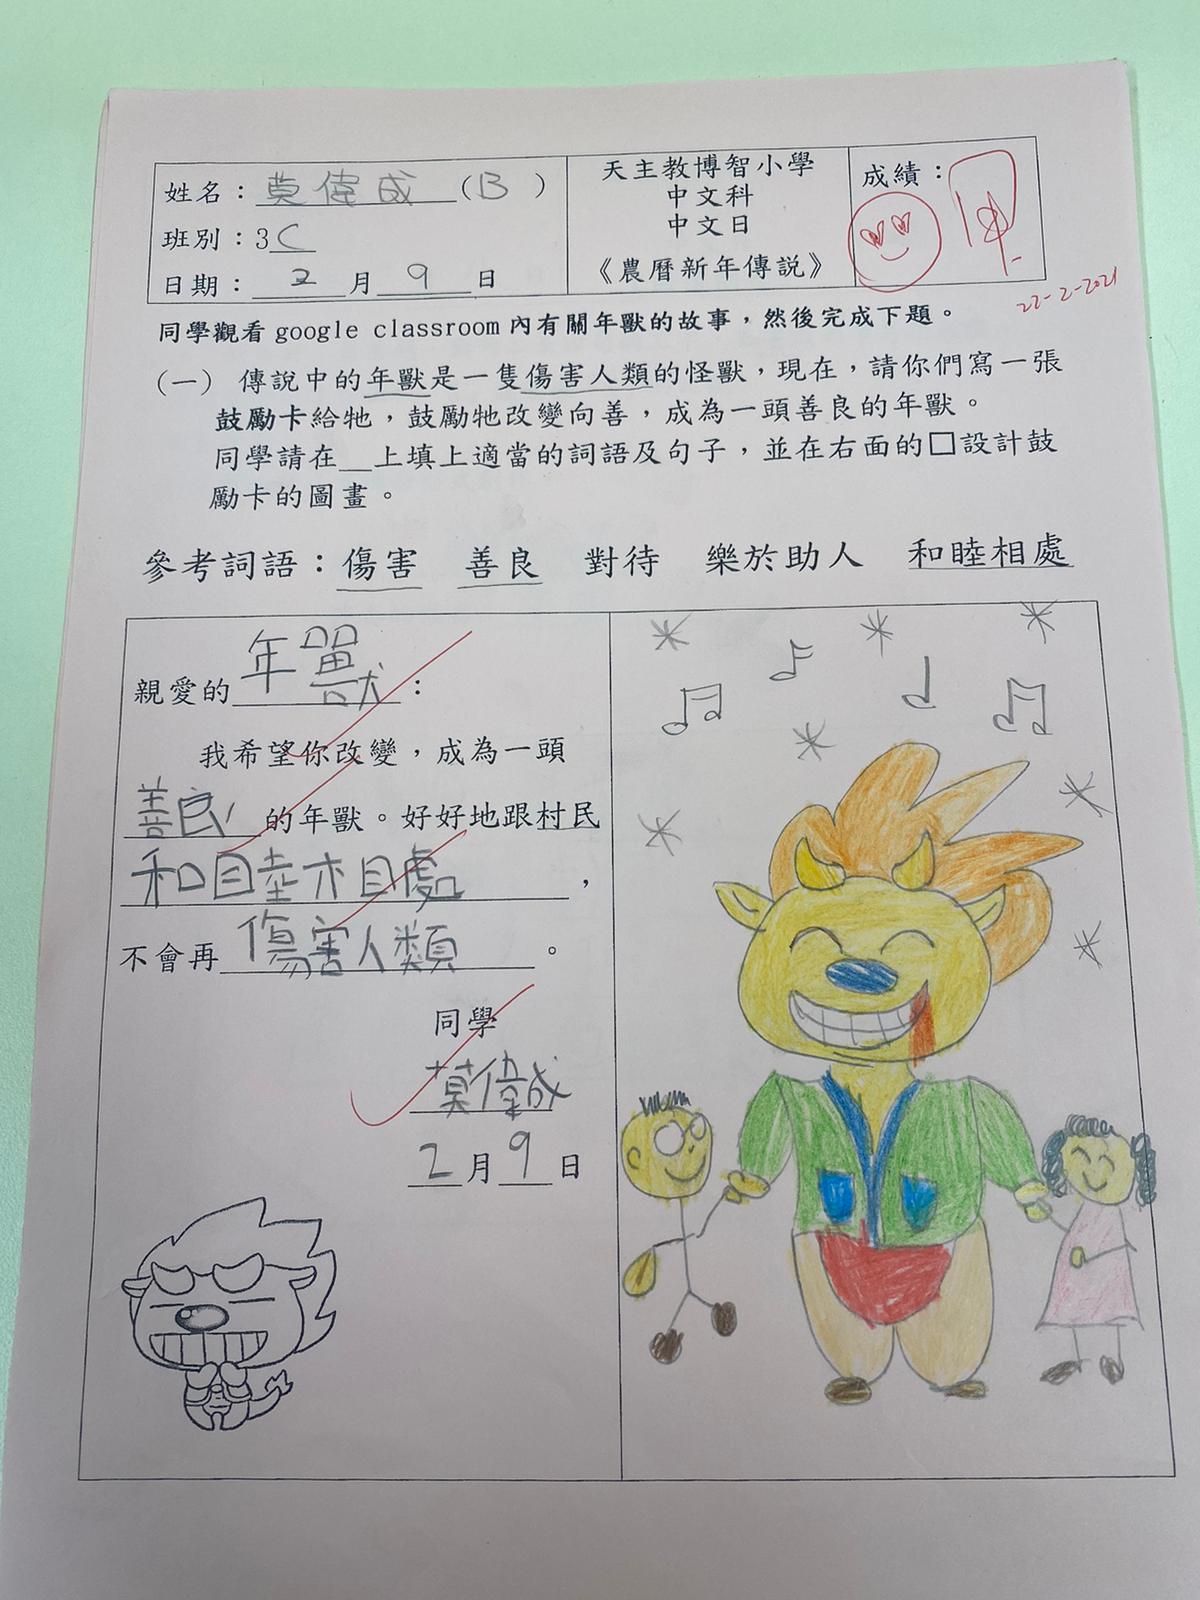 姓名：莫偉成（B）
班別：3C
日期：2月9日
天主教博智小學
中文科
中文日
《農曆新年傳說》
成績：
22-2-2021
同學觀看google classroom內有關年獸的故事，然後完成下題。
（一） 傳說中的年獸是一隻傷害人類的怪獸，現在，請你們寫一張
鼓勵卡給牠，鼓勵牠改變向善，成為一頭善良的年獸。
同學請在__上填上適當的詞語及句子，並在右面的□設計鼓
勵卡的圖畫。
參考詞語：傷害 善良 對待 樂於助人 和睦相處
親愛的年獸：
我希望你改變，成為一頭
善良的年獸。好好地跟村民
和睦相處，
不會再傷害人類。
同學
莫偉成
2月9日